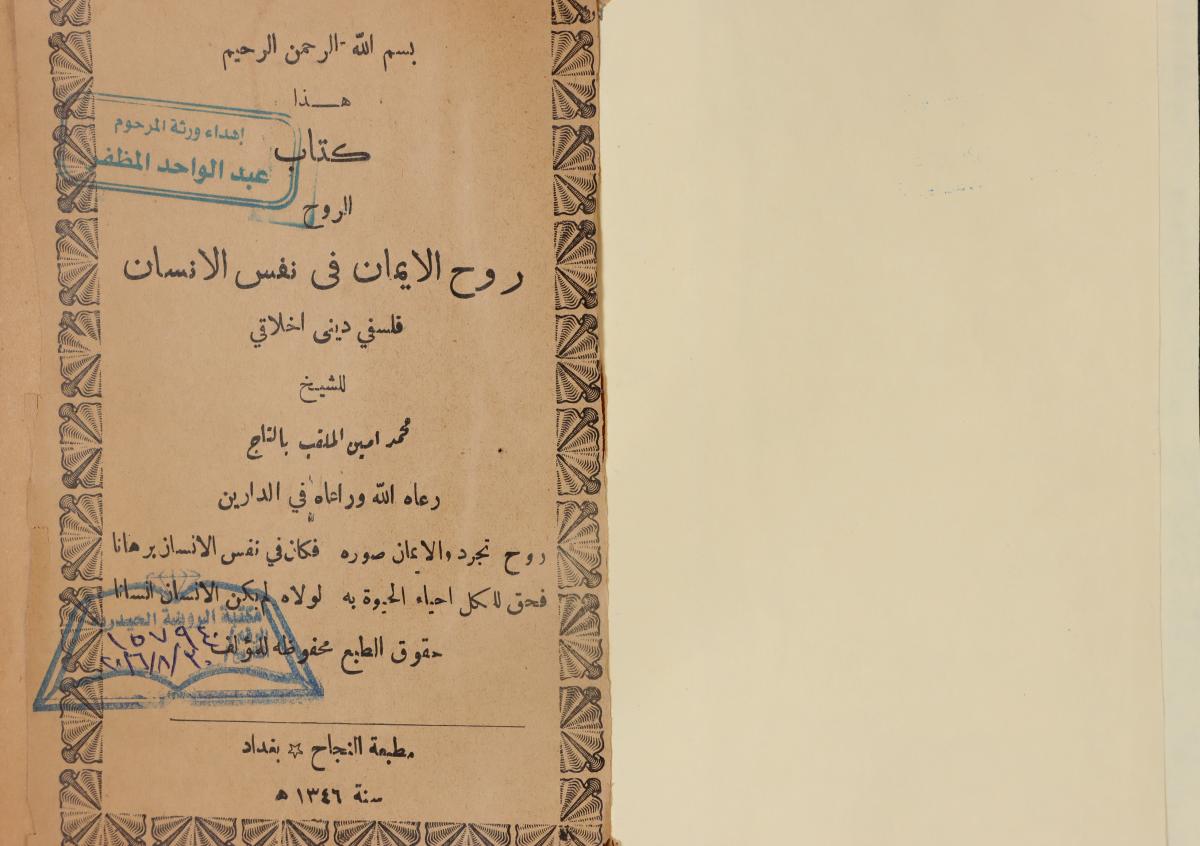 بسم الله الرحمن الرحيم
هـــذا
كتاب
الروح
روح الايمان فى نفس الانسان
فلسفي دينى اخلاقي
للشيخ
محمد امين الملقب بالتاج
رعاه الله وراعاه في الدارين
روح تجرد والايمان صوره فكان في نفس الانسان برهانا
فحق للكل احياء الحيوة به لولاه لم يكن الانسان انسانا
حقوق الطبع محفوظه للمؤلف
مطبعة النجاح ☆ بغداد
سنة ١٣٤٦ ه
إهداء ورثة المرحوم
عبد الواحد المظفر
مكتبة الروضة الحيدرية
١٥٧٩٤